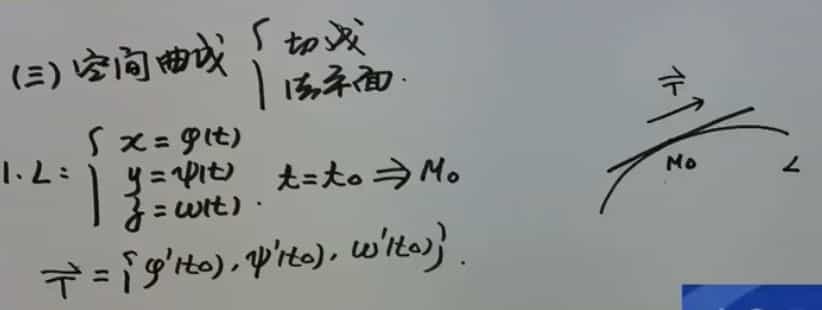 (三) 空间曲线 { 切线
法平面.
1. L: { x = φ(t)
y = ψ(t)   t = t₀ ⇒ M₀
z = ω(t).
T⃗ = {φ'(t₀), ψ'(t₀), ω'(t₀)}.
T⃗
M₀   L